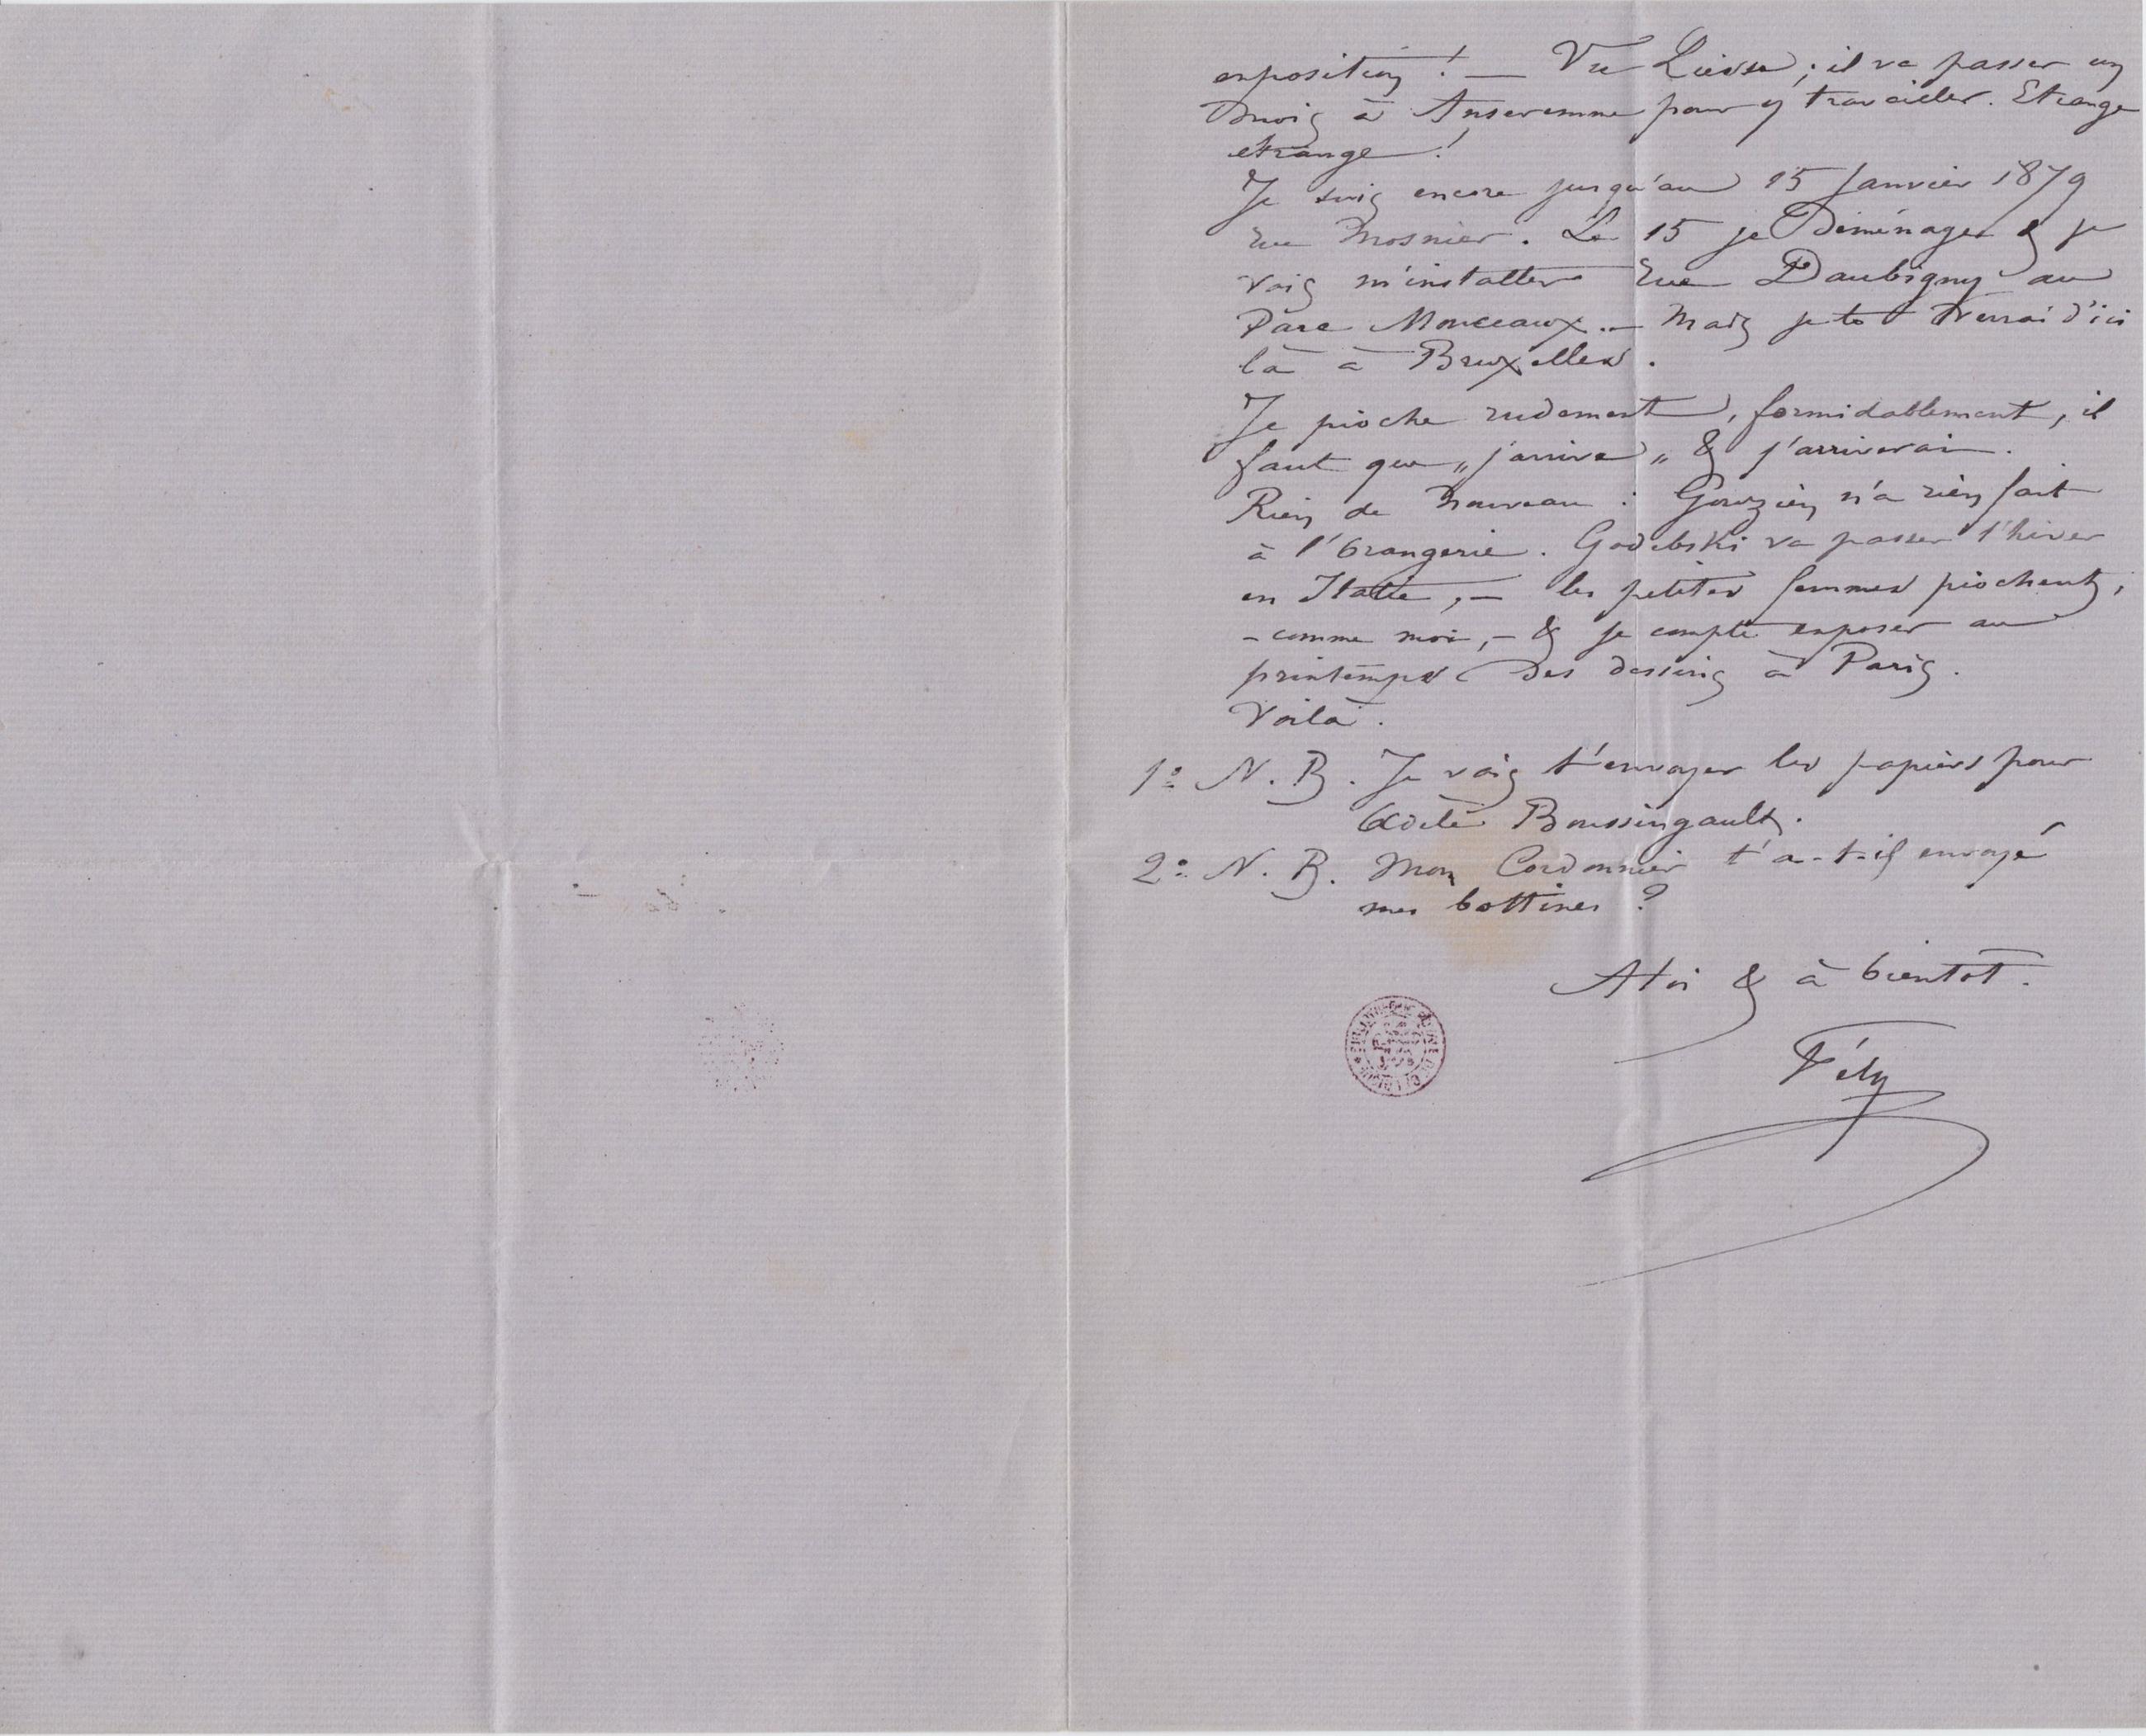 exposition ! — Vu Liesse ; il va passer un
mois à Anseremme pour y travailler. Etrange
étrange !
Je suis encore jusqu'au 15 Janvier 1879
rue Mosnier. Le 15 je déménage & je
vais m'installer rue Daubigny au
Parc Monceaux. — Mais je te verrai d'ici
là à Bruxelles.
Je pioche rudement, formidablement, il
faut que „ j'arrive „ & j'arriverai.
Rien de nouveau : Gouzien n'a rien fait
à l'Orangerie. Godebski va passer l'hiver
en Italie, — les petites femmes piochent,
– comme moi, – & je compte exposer au
printemps des dessins à Paris.
Voilà.
1º N. B. Je vais t'envoyer les papiers pour
Boussingault.
2º N. B. Mon Cordonnier t'a-t-il envoyé
mes bottines ?
A toi & à bientot.
Fély